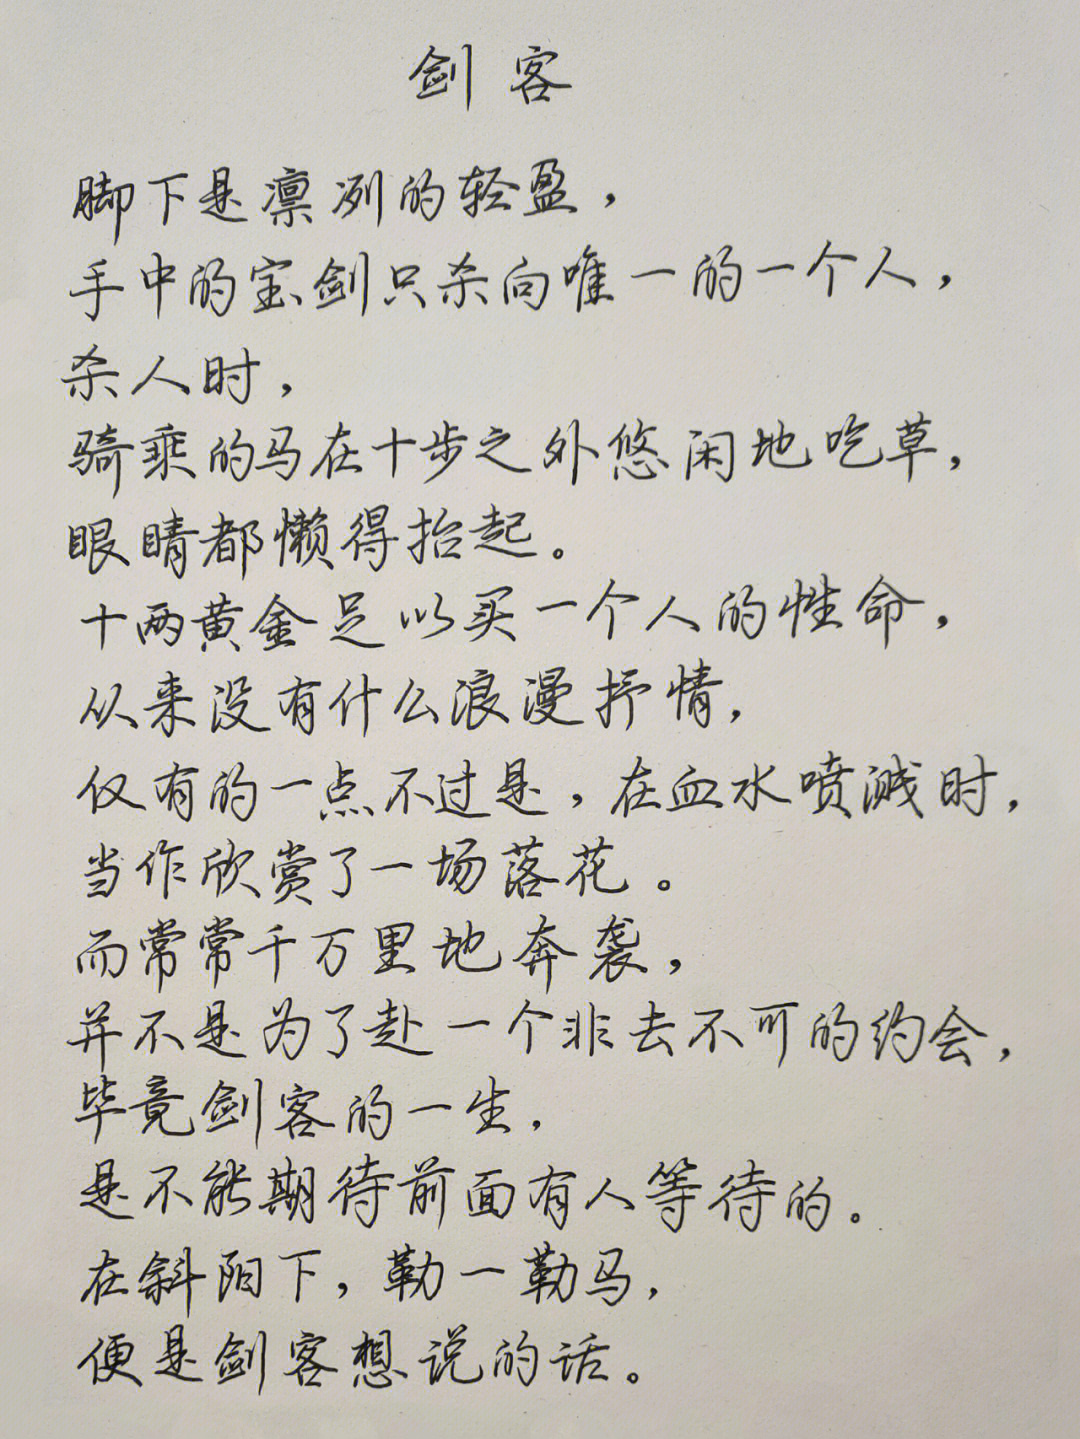 剑客
脚下是凛冽的轻盈，
手中的宝剑只杀向唯一的一个人，
杀人时，
骑乘的马在十步之外悠闲地吃草，
眼睛都懒得抬起。
十两黄金足以买一个人的性命，
从来没有什么浪漫抒情，
仅有的一点不过是，在血水喷溅时，
当作欣赏了一场落花。
而常常千万里地奔袭，
并不是为了赴一个非去不可的约会，
毕竟剑客的一生，
是不能期待前面有人等待的。
在斜阳下，勒一勒马，
便是剑客想说的话。